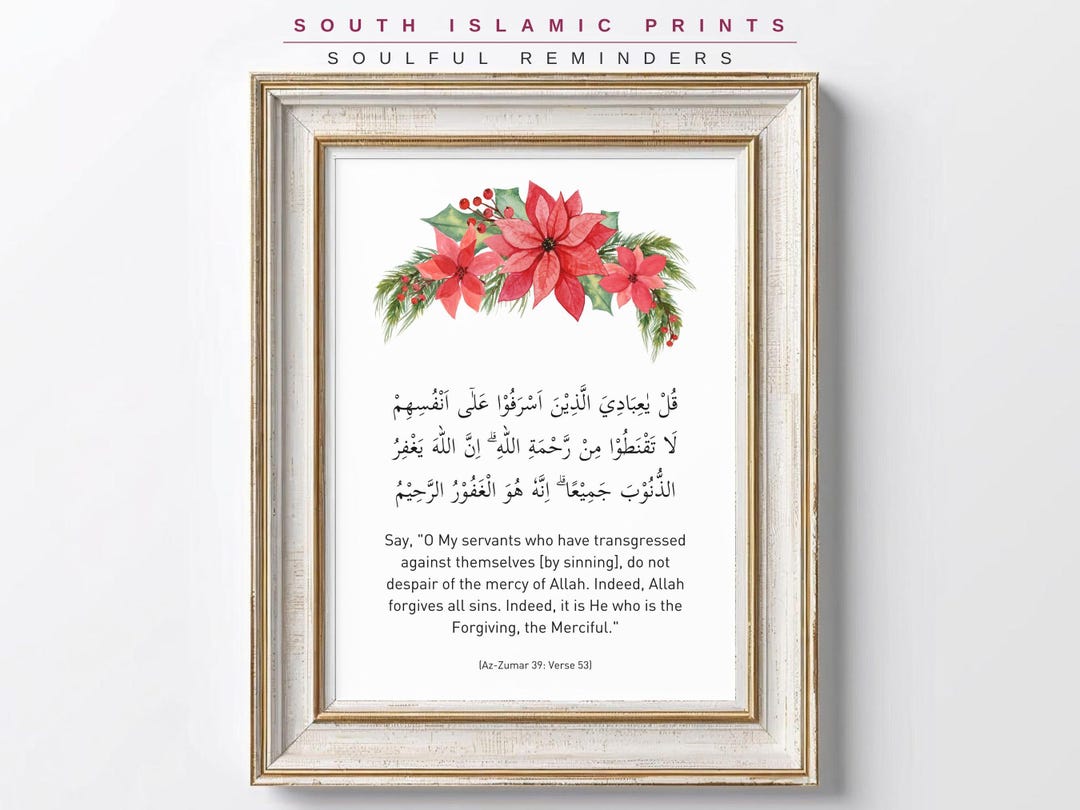 SOUTH ISLAMIC PRINTS
SOULFUL REMINDERS
قُلْ يٰعِبَادِيَ الَّذِيْنَ اَسْرَفُوْا عَلٰٓى اَنْفُسِهِمْ
لَا تَقْنَطُوْا مِنْ رَّحْمَةِ اللّٰهِ ۗ اِنَّ اللّٰهَ يَغْفِرُ
الذُّنُوْبَ جَمِيْعًا ۗ اِنَّهٗ هُوَ الْغَفُوْرُ الرَّحِيْمُ
Say, "O My servants who have transgressed
against themselves [by sinning], do not
despair of the mercy of Allah. Indeed, Allah
forgives all sins. Indeed, it is He who is the
Forgiving, the Merciful."
(Az-Zumar 39: Verse 53)